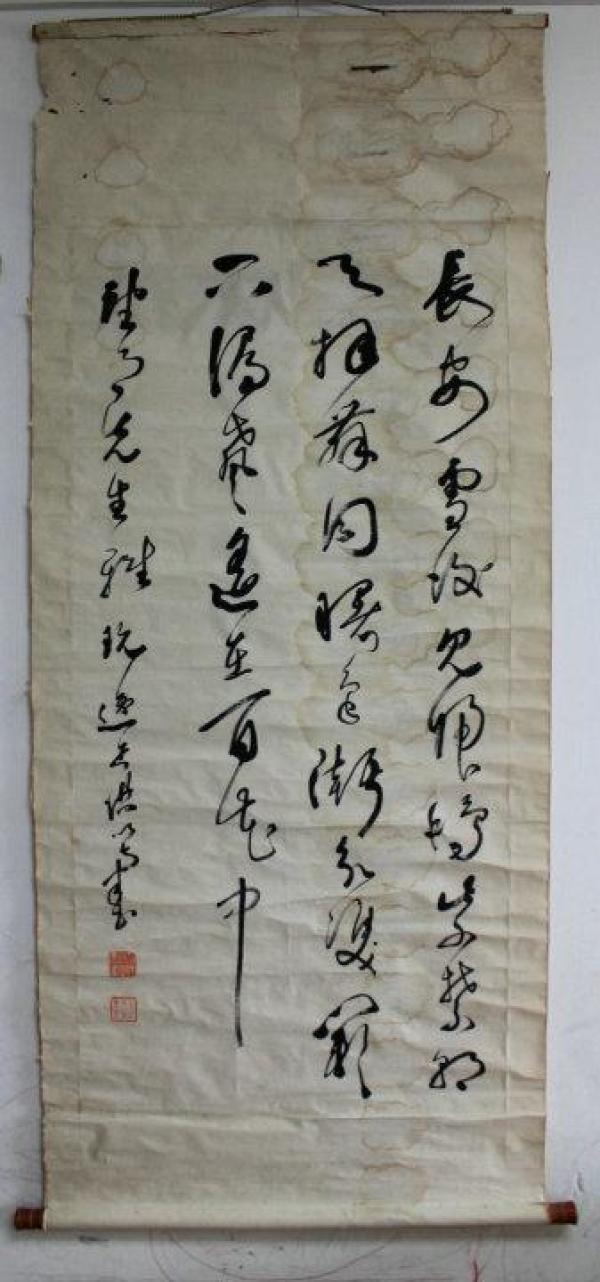 長安雪後見歸鴻紫禁朝
天拜舞同曙色漸分雙闕
下漏聲遙在百花中
先生雅玩 書